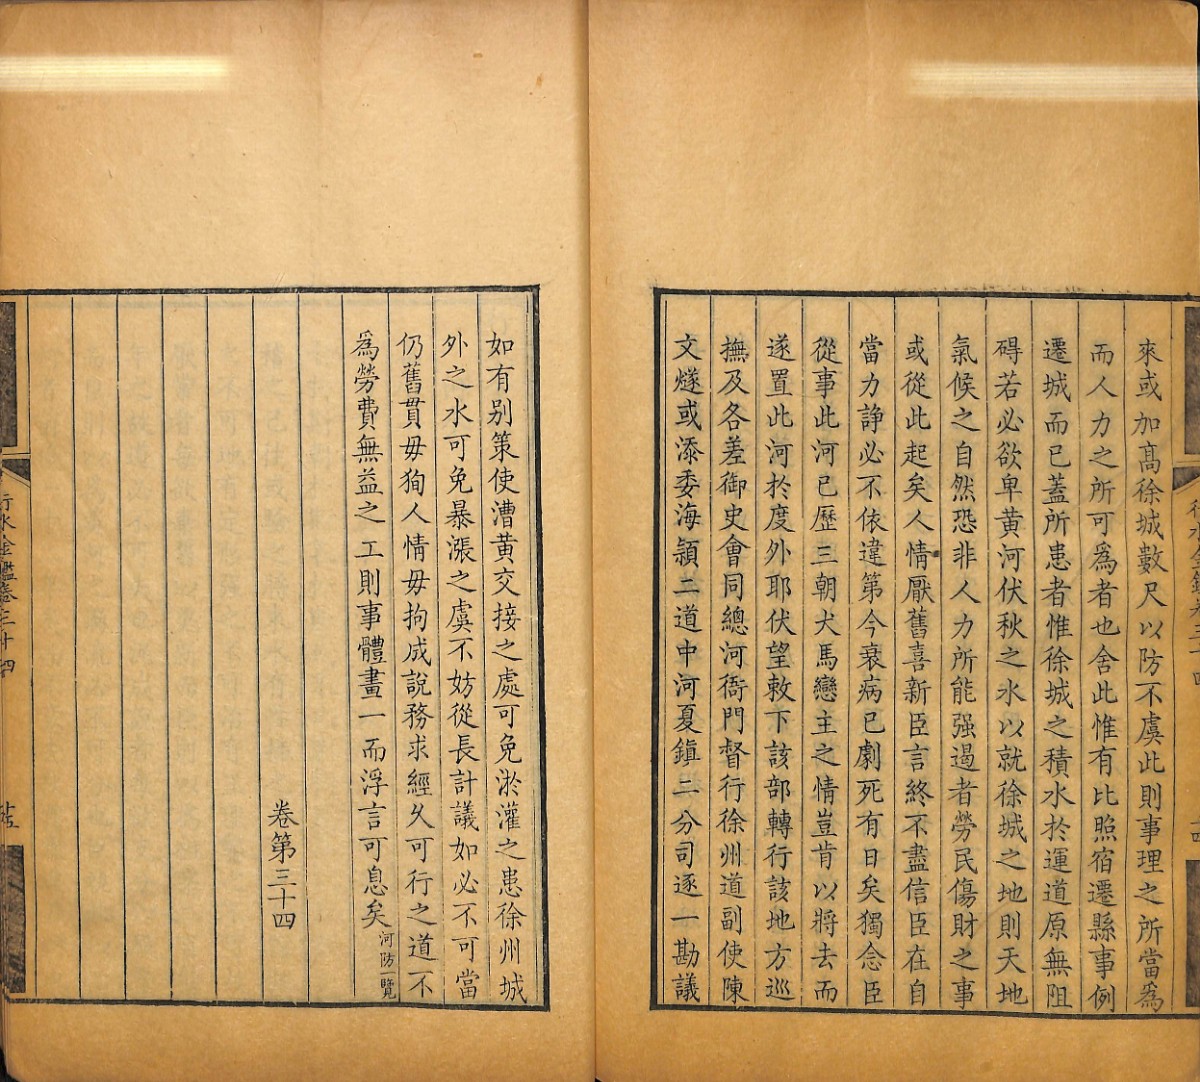 來或加髙徐城數尺以防不虞此則事理之所當爲
而人力之所可爲者也舍此惟有比照宿遷縣事例
遷城而已蓋所患者惟徐城之積水於運道原無阻
碍若必欲卑黄河伏秋之水以就徐城之地則天地
氣候之自然恐非人力所能强過者勞民傷財之事
或從此起矣人情厭舊喜新臣言終不盡信臣在自
當力諍必不依違第今衰病已劇死有日矣獨念臣
從事此河已歷三朝犬馬戀主之情豈肯以將去而
遂置此河於度外耶伏望敕下該部轉行該地方巡
撫及各差御史會同總河衙門督行徐州道副使陳
文燧或添委海頴二道中河夏鎮二分司逐一勘議
如有别策使漕黄交接之處可免淤灌之患徐州城
外之水可免暴漲之虞不妨從長計議如必不可當
仍舊貫毋狥人情毋拘成説務求經久可行之道不
爲勞費無益之工則事體畫一而浮言可息矣河防一覽
卷第三十四
行水金鑑卷三十四